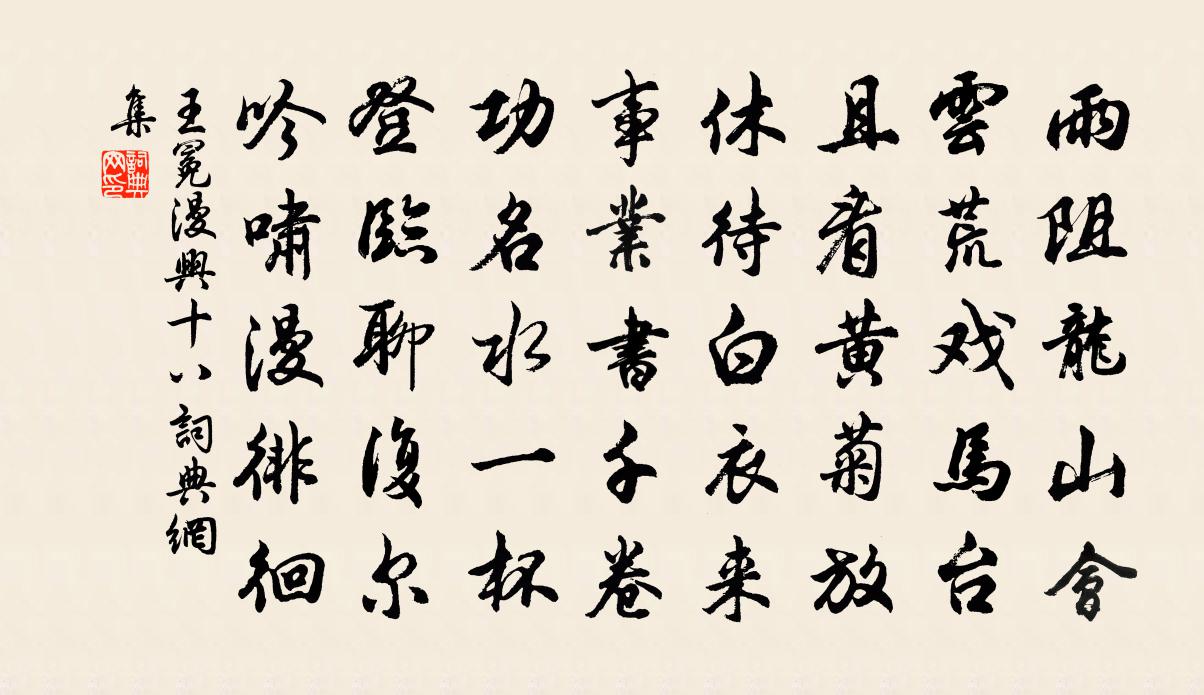 雨阻龍山會
雲荒戏馬台
且看黄菊放
休待白衣来
事業書千卷
功名水一杯
登臨聊復尔
吟嘯漫徘徊
王冕漫興十八 詞典網
集
詞典
网印